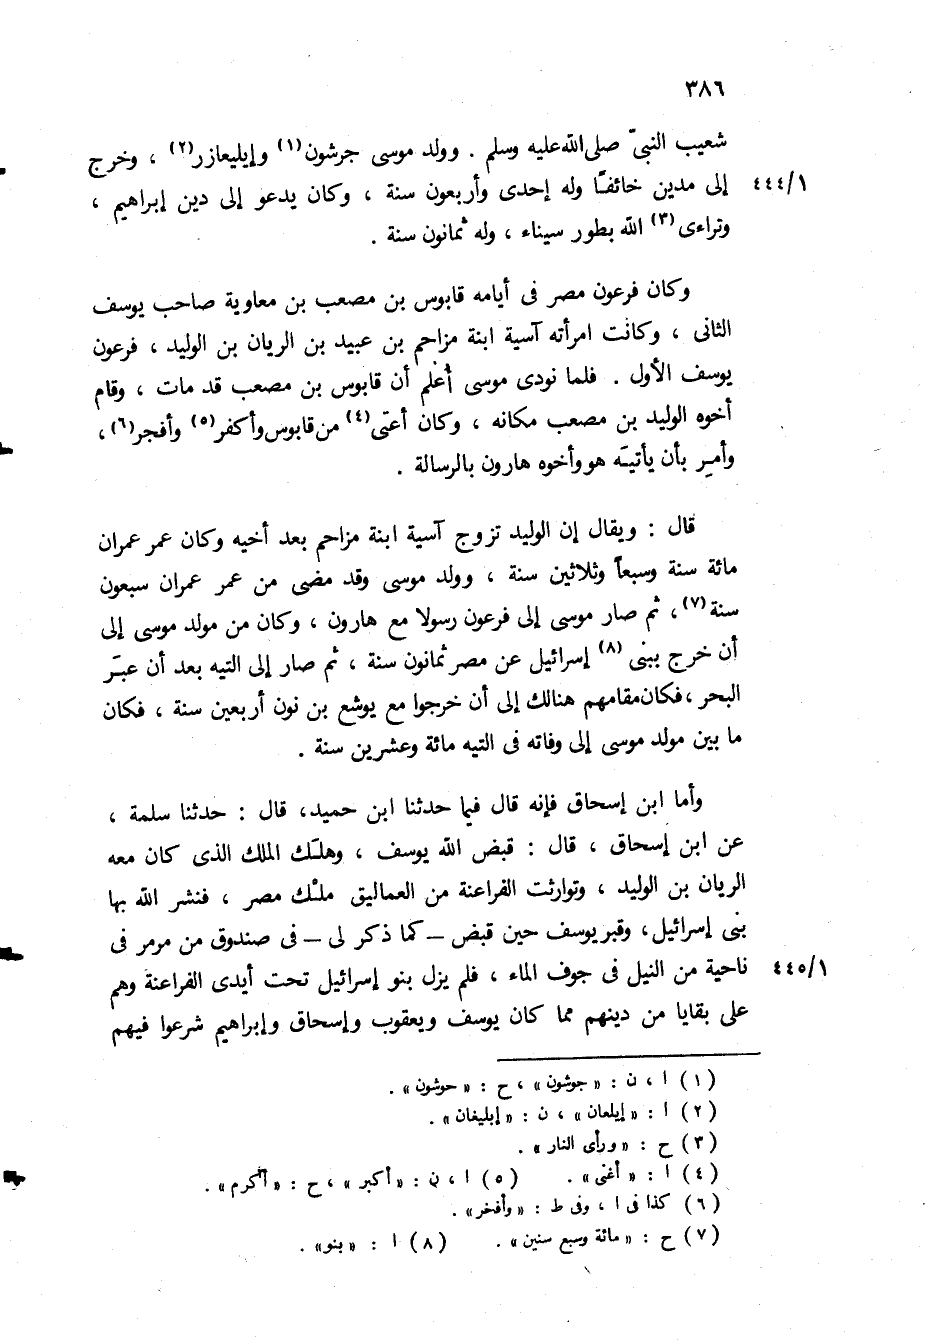 ٣٨٦
شعيب النبىّ صلى الله عليه وسلم . وولد موسى جرشون(١) وإيليعازر(٢) ، وخرج
١/٤٤٤ إلى مدين خائفًا وله إحدى وأربعون سنة ، وكان يدعو إلى دين إبراهيم ،
وتراءى(٣) الله بطور سيناء ، وله ثمانون سنة .
وكان فرعون مصر فى أيامه قابوس بن مصعب بن معاوية صاحب يوسف
الثانى ، وكانت امرأته آسية ابنة مزاحم بن عبيد بن الريان بن الوليد ، فرعون
يوسف الأول . فلما نودى موسى أُعْلِم أن قابوس بن مصعب قد مات ، وقام
أخوه الوليد بن مصعب مكانه ، وكان أعتى(٤) من قابوس وأكفر(٥) وأفجر(٦) ،
وأمِر بأن يأتيَه هو وأخوه هارون بالرسالة .
قال : ويقال إن الوليد تزوج آسية ابنة مزاحم بعد أخيه وكان عمر عمران
مائة سنة وسبعاً وثلاثين سنة ، وولد موسى وقد مضى من عمر عمران سبعون
سنة(٧) ، ثم صار موسى إلى فرعون رسولا مع هارون ، وكان من مولد موسى إلى
أن خرج ببنى(٨) إسرائيل عن مصر ثمانون سنة ، ثم صار إلى التيه بعد أن عبَر
البحر ، فكان مقامهم هنالك إلى أن خرجوا مع يوشع بن نون أربعين سنة ، فكان
ما بين مولد موسى إلى وفاته فى التيه مائة وعشرين سنة .
وأما ابن إسحاق فإنه قال فيما حدثنا ابن حميد، قال : حدثنا سلمة ،
عن ابن إسحاق ، قال : قبض الله يوسف ، وهلَك الملك الذى كان معه
الريان بن الوليد ، وتوارثت الفراعنة من العماليق ملْك مصر ، فنشر الله بها
بنى إسرائيل، وقبر يوسف حين قبض – كما ذكر لى – فى صندوق من مرمر فى
١/٤٤٥ ناحية من النيل فى جوف الماء ، فلم يزل بنو إسرائيل تحت أيدى الفراعنة وهم
على بقايا من دينهم مما كان يوسف ويعقوب وإسحاق وإبراهيم شرعوا فيهم
(١) ا ، ن : «جوشون» ، ح : «حوشون» .
(٢) ا : «إيلعان» ، ن : «إيليغان» .
(٣) ح : «ورأى النار» .
(٤) ا : «أغنى» . (٥) ا ، ن : «أكبر» ، ح : «أكرم» .
(٦) كذا فى ا ، وفى ط : «وأفخر» .
(٧) ح : «مائة وسبع سنين» . (٨) ا : «بنو» .